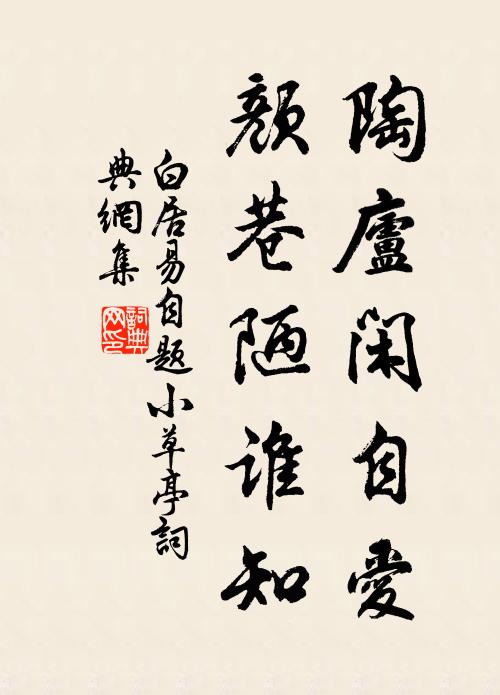 陶廬閑自愛
顏巷陋誰知
白居易自題小草亭詞
典網集
詞典
网印